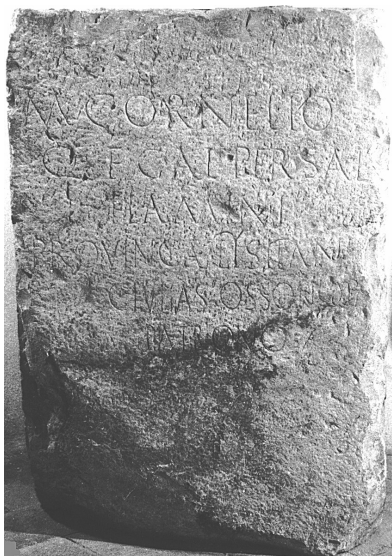 M CORNELIO
Q F GAL PERSAE
FLAMINI
LVSITANI
CIVITAS OSSONOB
PATRONO